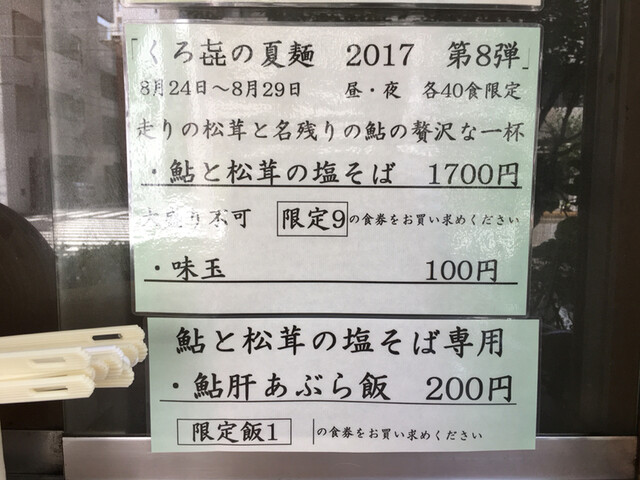 「くろ㐂の夏麺 2017 第8弾」
8月24日～8月29日 昼・夜 各40食限定
走りの松茸と名残りの鮎の贅沢な一杯
・鮎と松茸の塩そば 1700円
不可 限定9の食券をお買い求めください
・味玉 100円
鮎と松茸の塩そば専用
・鮎肝あぶら飯 200円
限定飯1 の食券をお買い求めください